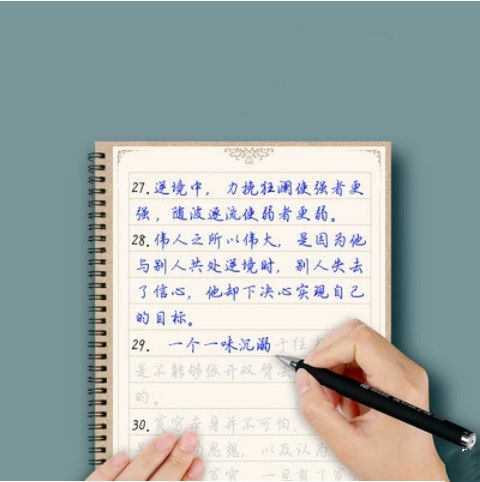 27.逆境中，力挽狂澜使强者更
强，随波逐流使弱者更弱。
28.伟人之所以伟大，是因为他
与别人共处逆境时，别人失去
了信心，他却下决心实现自己
的目标。
29. 一个一味沉溺于往
是不能够张开双臂去
的。
30.贫穷本身并不可怕，
是 的思想，以及认为
贫穷，一旦有了贫